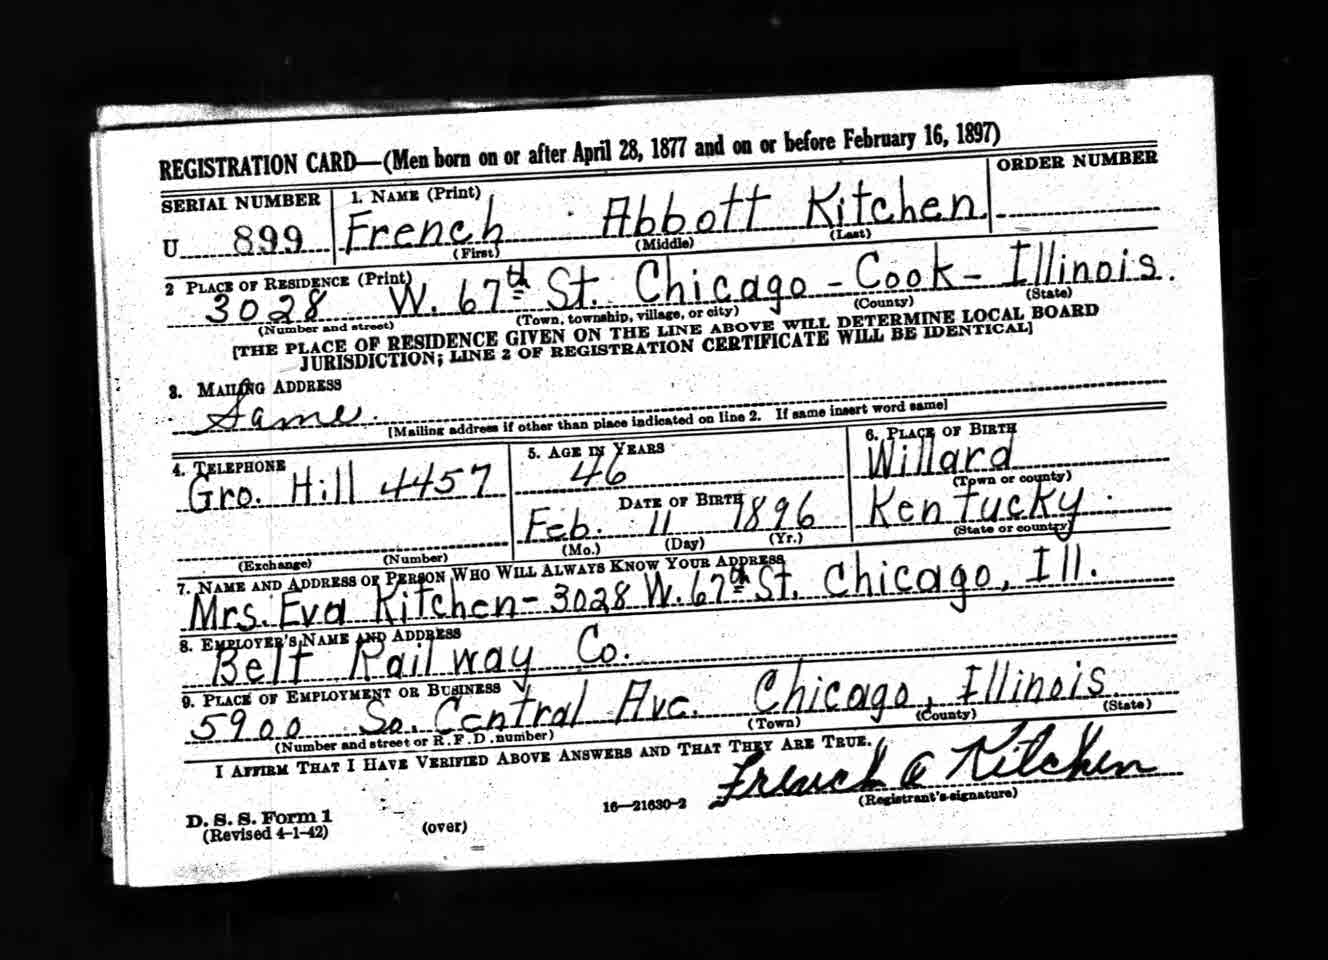 REGISTRATION CARD—(Men born on or after April 28, 1877 and on or before February 16, 1897)
SERIAL NUMBER
1. NAME (Print)
ORDER NUMBER
U 899
French Abbott Kitchen
(First) (Middle) (Last)
2 PLACE OF RESIDENCE (Print)
3028 W. 67th St. Chicago - Cook - Illinois.
(Number and street) (Town, township, village, or city) (County) (State)
[THE PLACE OF RESIDENCE GIVEN ON THE LINE ABOVE WILL DETERMINE LOCAL BOARD
JURISDICTION; LINE 2 OF REGISTRATION CERTIFICATE WILL BE IDENTICAL]
3. MAILING ADDRESS
Same
[Mailing address if other than place indicated on line 2. If same insert word same]
4. TELEPHONE
Gro. Hill 4457
(Exchange) (Number)
5. AGE IN YEARS
46
DATE OF BIRTH
Feb. 11 1896
(Mo.) (Day) (Yr.)
6. PLACE OF BIRTH
Willard
(Town or county)
Kentucky.
(State or country)
7. NAME AND ADDRESS OF PERSON WHO WILL ALWAYS KNOW YOUR ADDRESS
Mrs. Eva Kitchen - 3028 W. 67th St. Chicago, Ill.
8. EMPLOYER'S NAME AND ADDRESS
Belt Railway Co.
9. PLACE OF EMPLOYMENT OR BUSINESS
5900 So. Central Ave. Chicago, Illinois
(Number and street or R. F. D. number) (Town) (County) (State)
I AFFIRM THAT I HAVE VERIFIED ABOVE ANSWERS AND THAT THEY ARE TRUE.
French A Kitchen
(Registrant's signature)
D. S. S. Form 1
(Revised 4-1-42)
(over)
16—21630-2